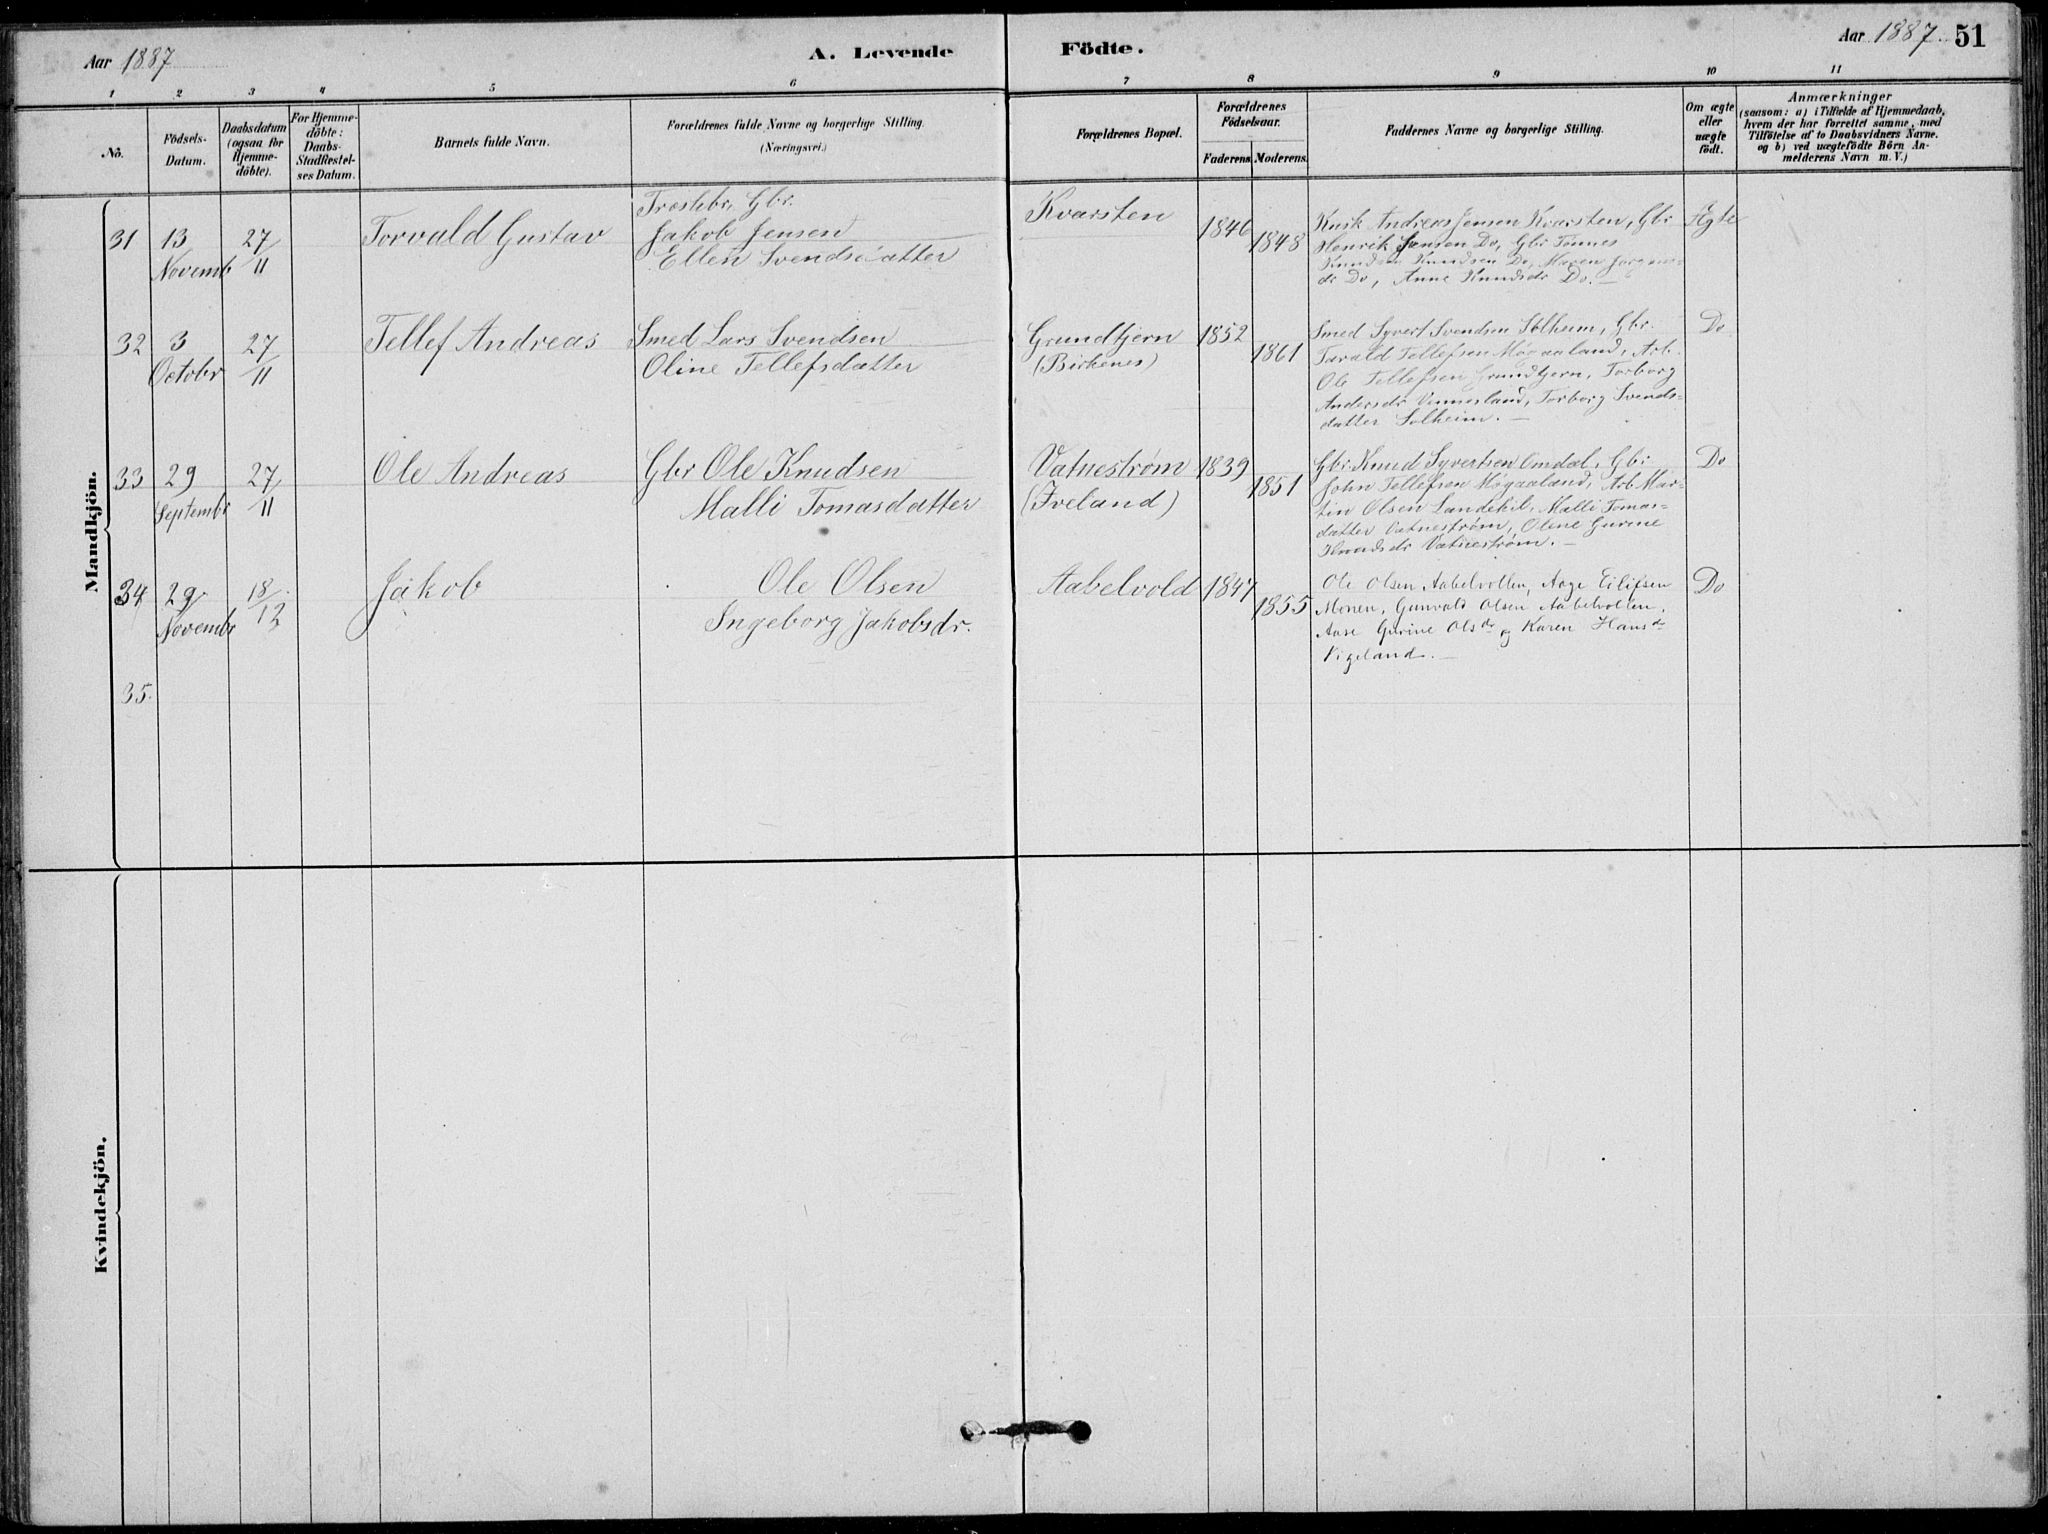 Aar 1887
A. Levende Födte.
Aar 1887. 51
1 2 3 4 5 6 7 8 9 10 11
No.
Födsels-
Datum.
Daabsdatum
(ogsaa for
Hjemme-
döbte).
For Hjemme-
döbte:
Daabs-
Stadfæstel-
ses Datum.
Barnets fulde Navn.
Forældrenes fulde Navne og borgerlige Stilling.
(Næringsvei.)
Forældrenes Bopæl.
Forældrenes
Födselsaar.
Faderens. Moderens.
Faddernes Navne og borgerlige Stilling.
Om ægte
eller
uægte
födt.
Anmærkninger
(saasom: a) i Tilfælde af Hjemmedaab,
hvem der har forrettet samme, med
Tilföielse af to Daabsvidners Navne.
og b) ved uægtefödte Börn An-
melderens Navn m.V.)
Mandkjön.
31 13 Novembr 27/11 Torvald Gustav
Gbr.
Jakob Jensen
Ellen Svendsdatter
Kvarsten
1846 1848
Kusk Andreas Jensen Kvarsten, Gbr
Henrik Jensen Do, Gbr Tønnes
Knudsen Do, Maren Jørgens-
dr Do, Anne Knudsdr Do. —
Ægte
32 3 Octobr 27/11 Tellef Andreas
Smed Lars Svendsen
Oline Tellefsdatter
Grundtjern
(Birkenes)
1852 1861
Smed Syvert Svendsen Solheim, Gbr.
Tarald Tellefsen Møgaaland, Arb.
Ole Tellefsen Grundtjern, Torborg
Andersdr Vennesland, Torborg Svends-
datter Solheim. —
Do
33 29 Septembr 27/11 Ole Andreas
Gbr Ole Knudsen
Malli Tomasdatter
Vatnestrøm
(Iveland)
1839 1851
Gbr. Knud Syvertsen Omdal, Gbr
John Tellefsen Møgaaland, Arb Mar-
tin Olsen Landekil, Malli Tomas-
datter Vatnestrøm, Oline Gurine
Knudsdr Vatnestrøm. —
Do
34 29. Novembr 18/12 Jakob
Ole Olsen
Ingeborg Jakobsdr.
Aabelvold
1847 1855
Ole Olsen Aabelvollen, Aage Eilifsen
Monen, Gunvald Olsen Aabelvollen,
Aase Gurine Olsdr og Karen Hansdr
Vigeland. —
Do
35.
Kvindekjön.